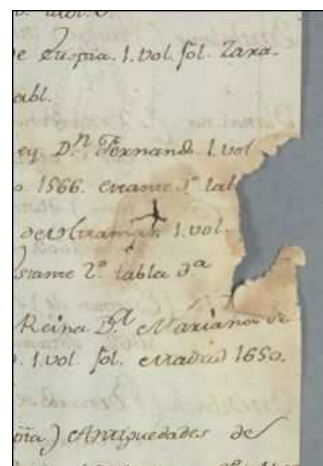 e Eurpia. 1. vol. fol. Zara.
abl.
ey D.ⁿ Fernando 1. vol
o. 1566. estante 1º tab
de Ultramar 1. vol.
estante 2º tabla 3ª
Reina D.ª Mariana de
. 1. vol fol. Madrid 1650.
Antiguedades de